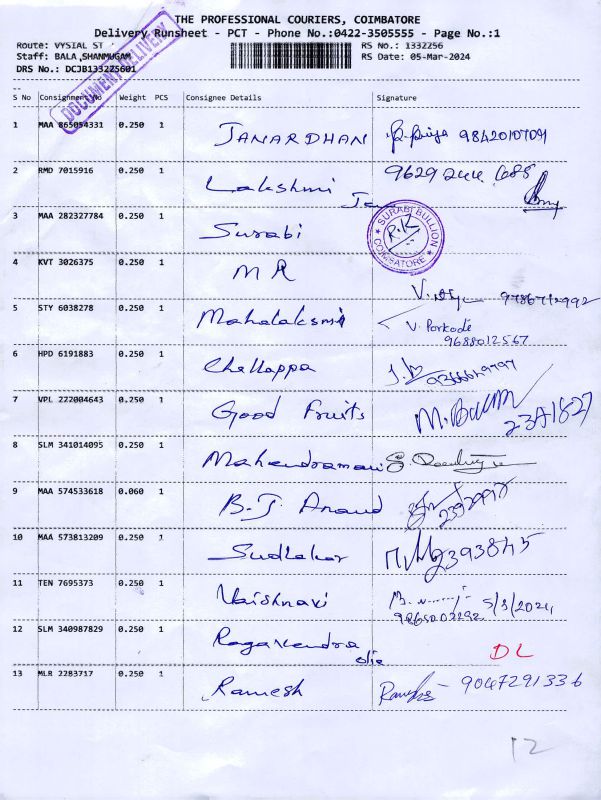 THE PROFESSIONAL COURIERS, COIMBATORE
Delivery Runsheet - PCT - Phone No.:0422-3505555 - Page No.:1
Route: VYSIAL ST
RS No.: 1332256
Staff: BALA,SHANMUGAM
RS Date: 05-Mar-2024
DRS No.: DCJB1332256O1
DOCUMENT DELIVERY
S No Consignment No Weight PCS Consignee Details Signature
1 MAA 865054331 0.250 1 JANARDHAN
2 RMD 7015916 0.250 1 Lakshmi 9629244685
3 MAA 282327784 0.250 1 Surabi
SURABI BULLION
R.K
COIMBATORE
4 KVT 3026375 0.250 1 M R
5 STY 6038278 0.250 1 Mahalaksmi V. Porkode
9688012567
6 HPD 6191883 0.250 1 Chellappa
7 VPL 222004643 0.250 1 Good Fruits 23A1827
8 SLM 341014095 0.250 1 Mahendramani
9 MAA 574533618 0.060 1 B.J. Anand
10 MAA 573813209 0.250 1 Sudhakar
11 TEN 7695373 0.250 1 Vaishnavi 5/3/2024
12 SLM 340987829 0.250 1 Ragavendra DL
13 MLR 2283717 0.250 1 Ramesh 9047291336
12